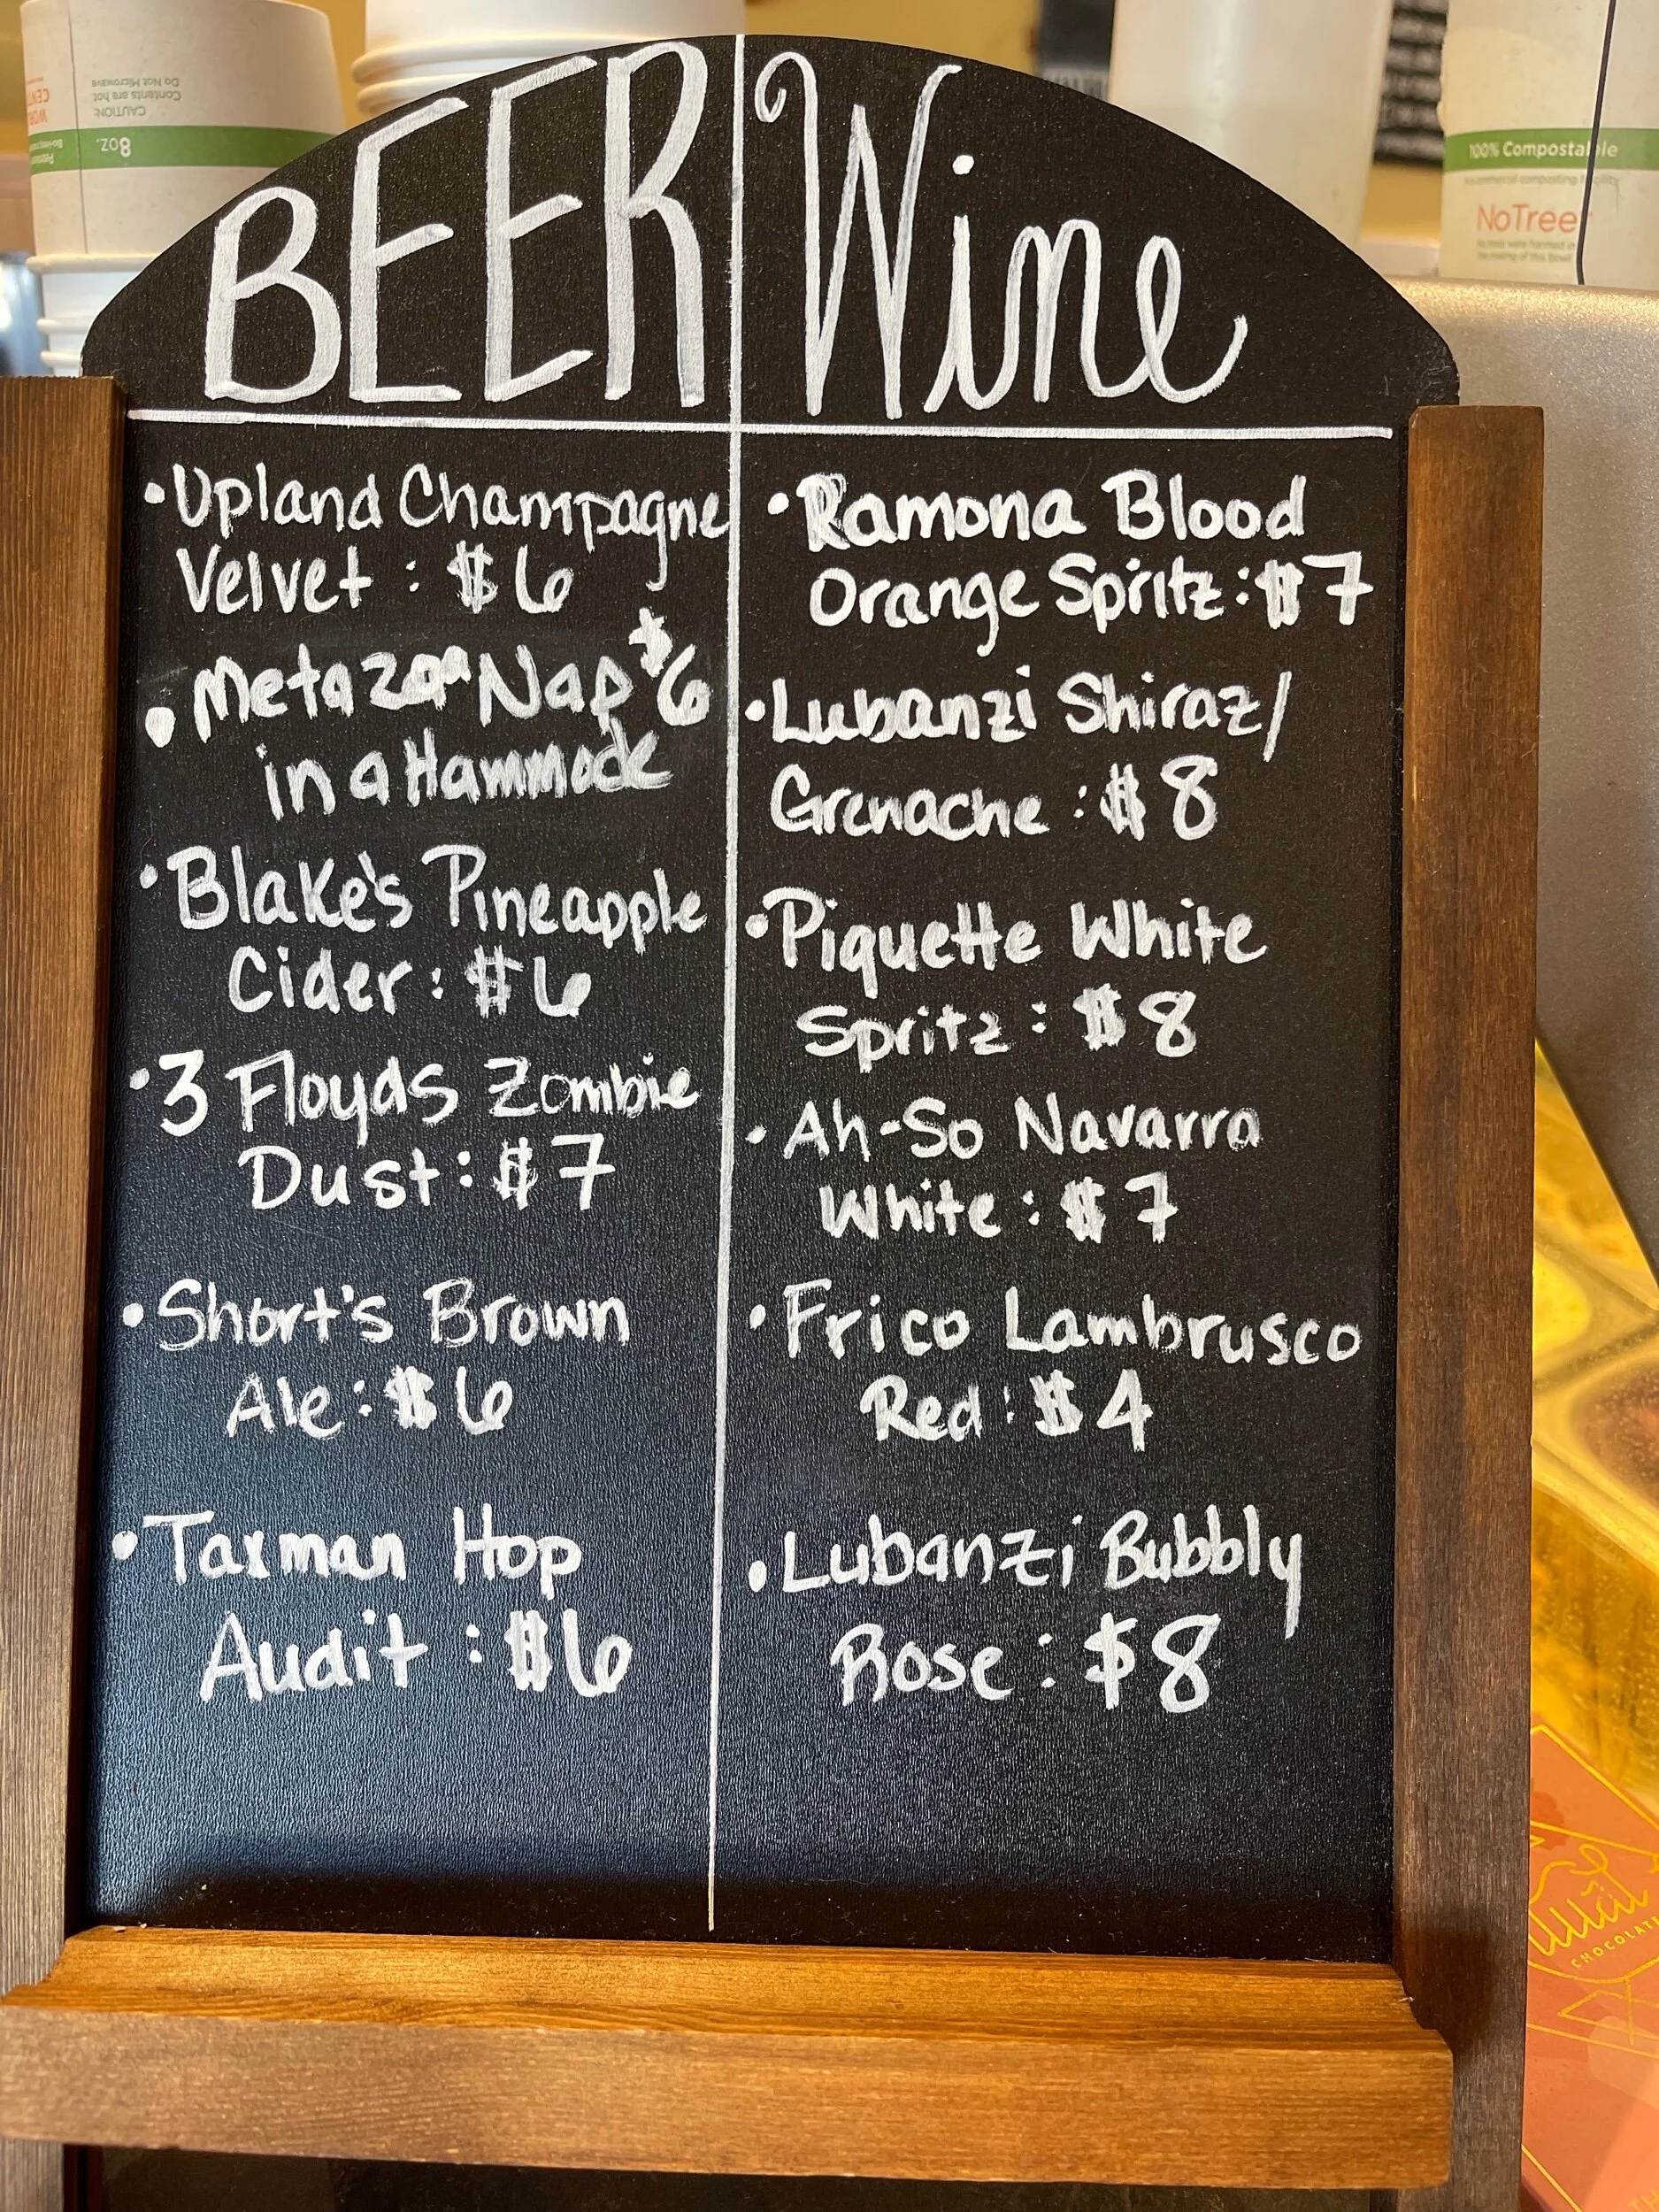 BEER
Upland Champagne
Velvet: $6
Metazoa Nap $6
in a Hammock
Blake's Pineapple
Cider: $6
3 Floyds Zombie
Dust: $7
Short's Brown
Ale: $6
Taxman Hop
Audit: $6
Wine
Ramona Blood
Orange Spritz: $7
Lubanzi Shiraz/
Grenache: $8
Piquette White
Spritz: $8
Ah-So Navarra
White: $7
Frico Lambrusco
Red: $4
Lubanzi Bubbly
Rose: $8
8oz.
CAUTION:
Contents are hot
Do Not Microwave
100% Compostable
NoTree
CHOCOLAT